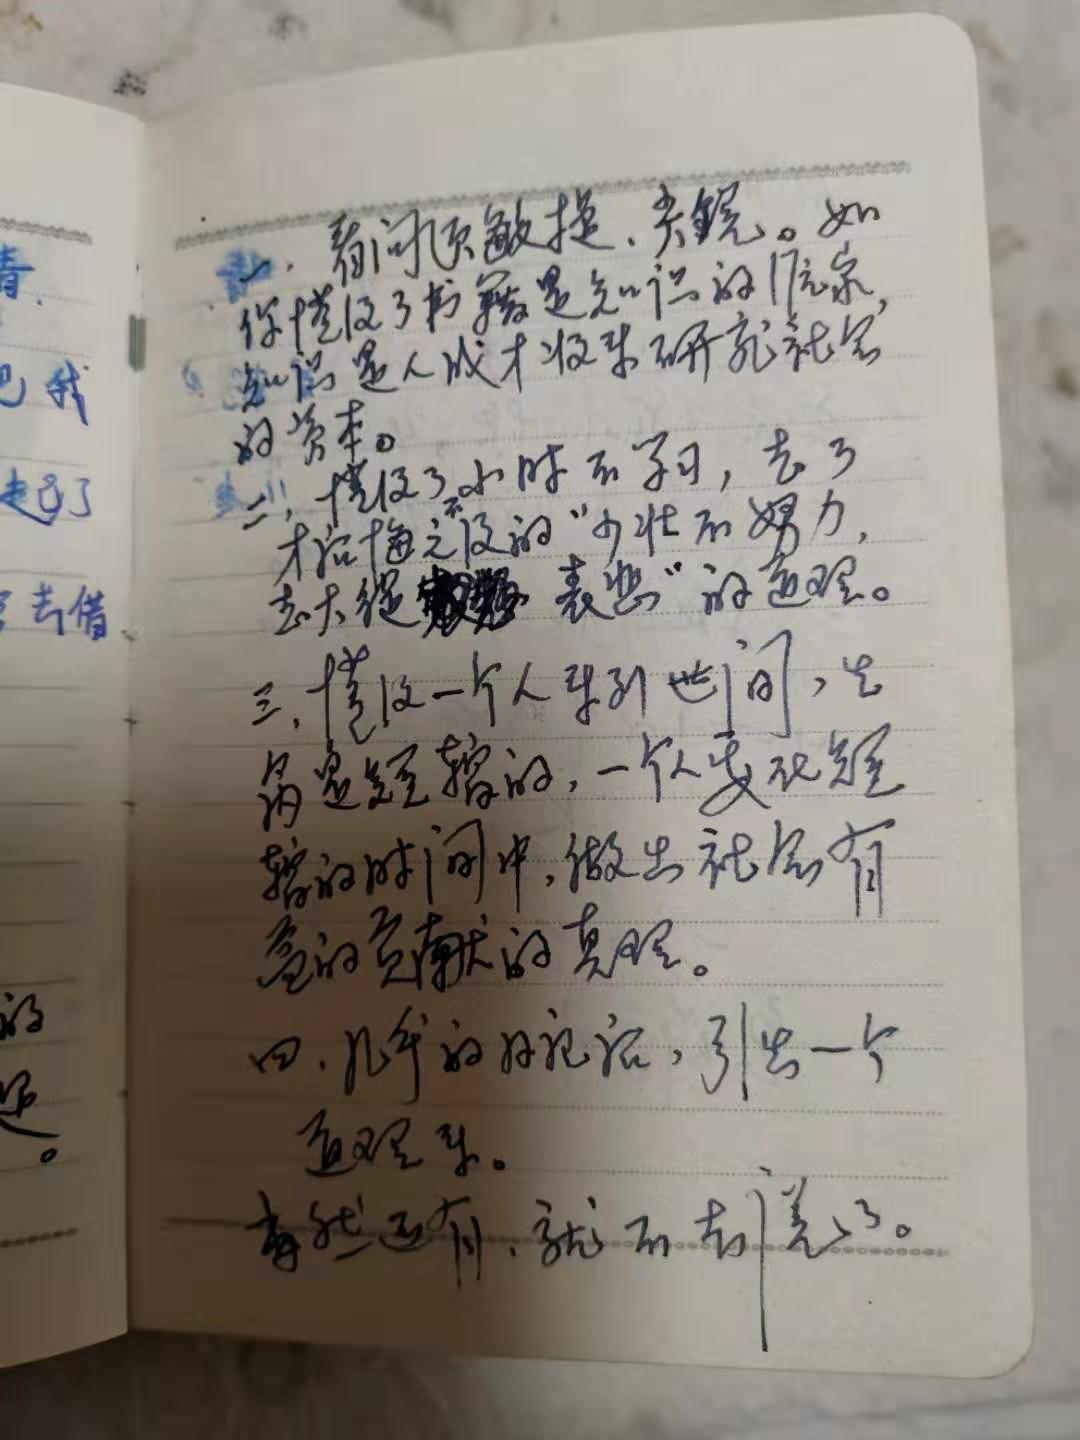 青.
一、看问题敏捷、尖锐。如
吧 我
你懂得了书籍是知识的源泉,
知识是人成才将来研究社会
的资本。
走已了
二、懂得了小时不学习,老了
才后悔之不及的“少壮不努力,
去借
老大徒 悲”的道理。
三、懂得一个人来到世间,生
命是短暂的,一个人要在短
暂的时间中,做出社会有
益的贡献的真理。
的
四、几年的日记后,引出一个
是。
道理来。
当然还有,就不去 了。